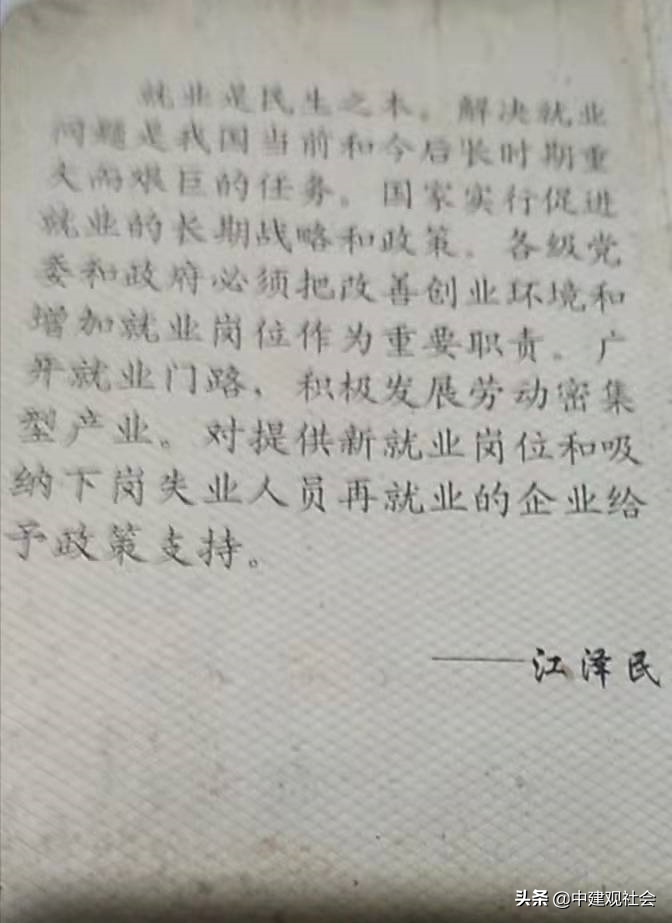 就业是民生之本。解决就业
问题是我国当前和今后长时期重
大而艰巨的任务。国家实行促进
就业的长期战略和政策。各级党
委和政府必须把改善创业环境和
增加就业岗位作为重要职责。广
开就业门路，积极发展劳动密集
型产业。对提供新就业岗位和吸
纳下岗失业人员再就业的企业给
予政策支持。
——江泽民
头条 @中建观社会